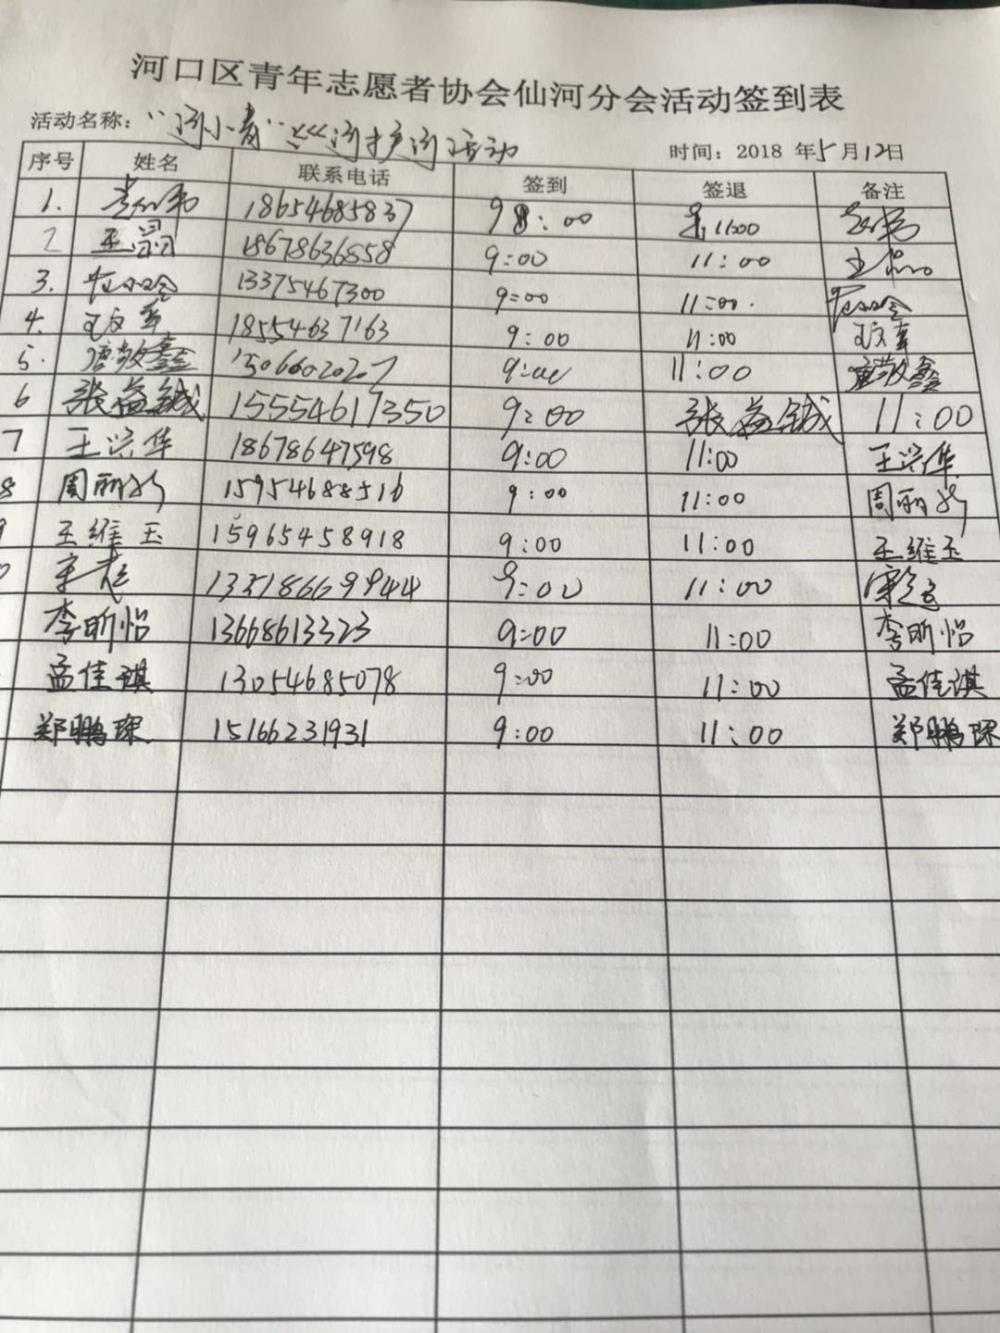 河口区青年志愿者协会仙河分会活动签到表
活动名称：“河小青”<<<河护河活动 时间：2018 年5月12日
序号 姓名 联系电话 签到 签退 备注
1. 18654685837 9:00 11:00
2 王晶 18678636858 9:00 11:00 王晶
3. 13375467300 9:00 11:00.
4. 18554637163 9:00 11:00
5. 唐敬鑫 15066020207 9:00 11:00 唐敬鑫
6 张益铖 15554617350 9:00 张益铖 11:00
7 王兴华 18678647598 9:00 11:00 王兴华
8 周丽 15954688516 9:00 11:00 周丽
9 王维玉 15965458918 9:00 11:00 王维玉
0 宋超 13318669944 9:00 11:00 宋超
李昕怡 13668613323 9:00 11:00 李昕怡
孟佳琪 13054685078 9:00 11:00 孟佳琪
郑鹏琛 15166231931 9:00 11:00 郑鹏琛